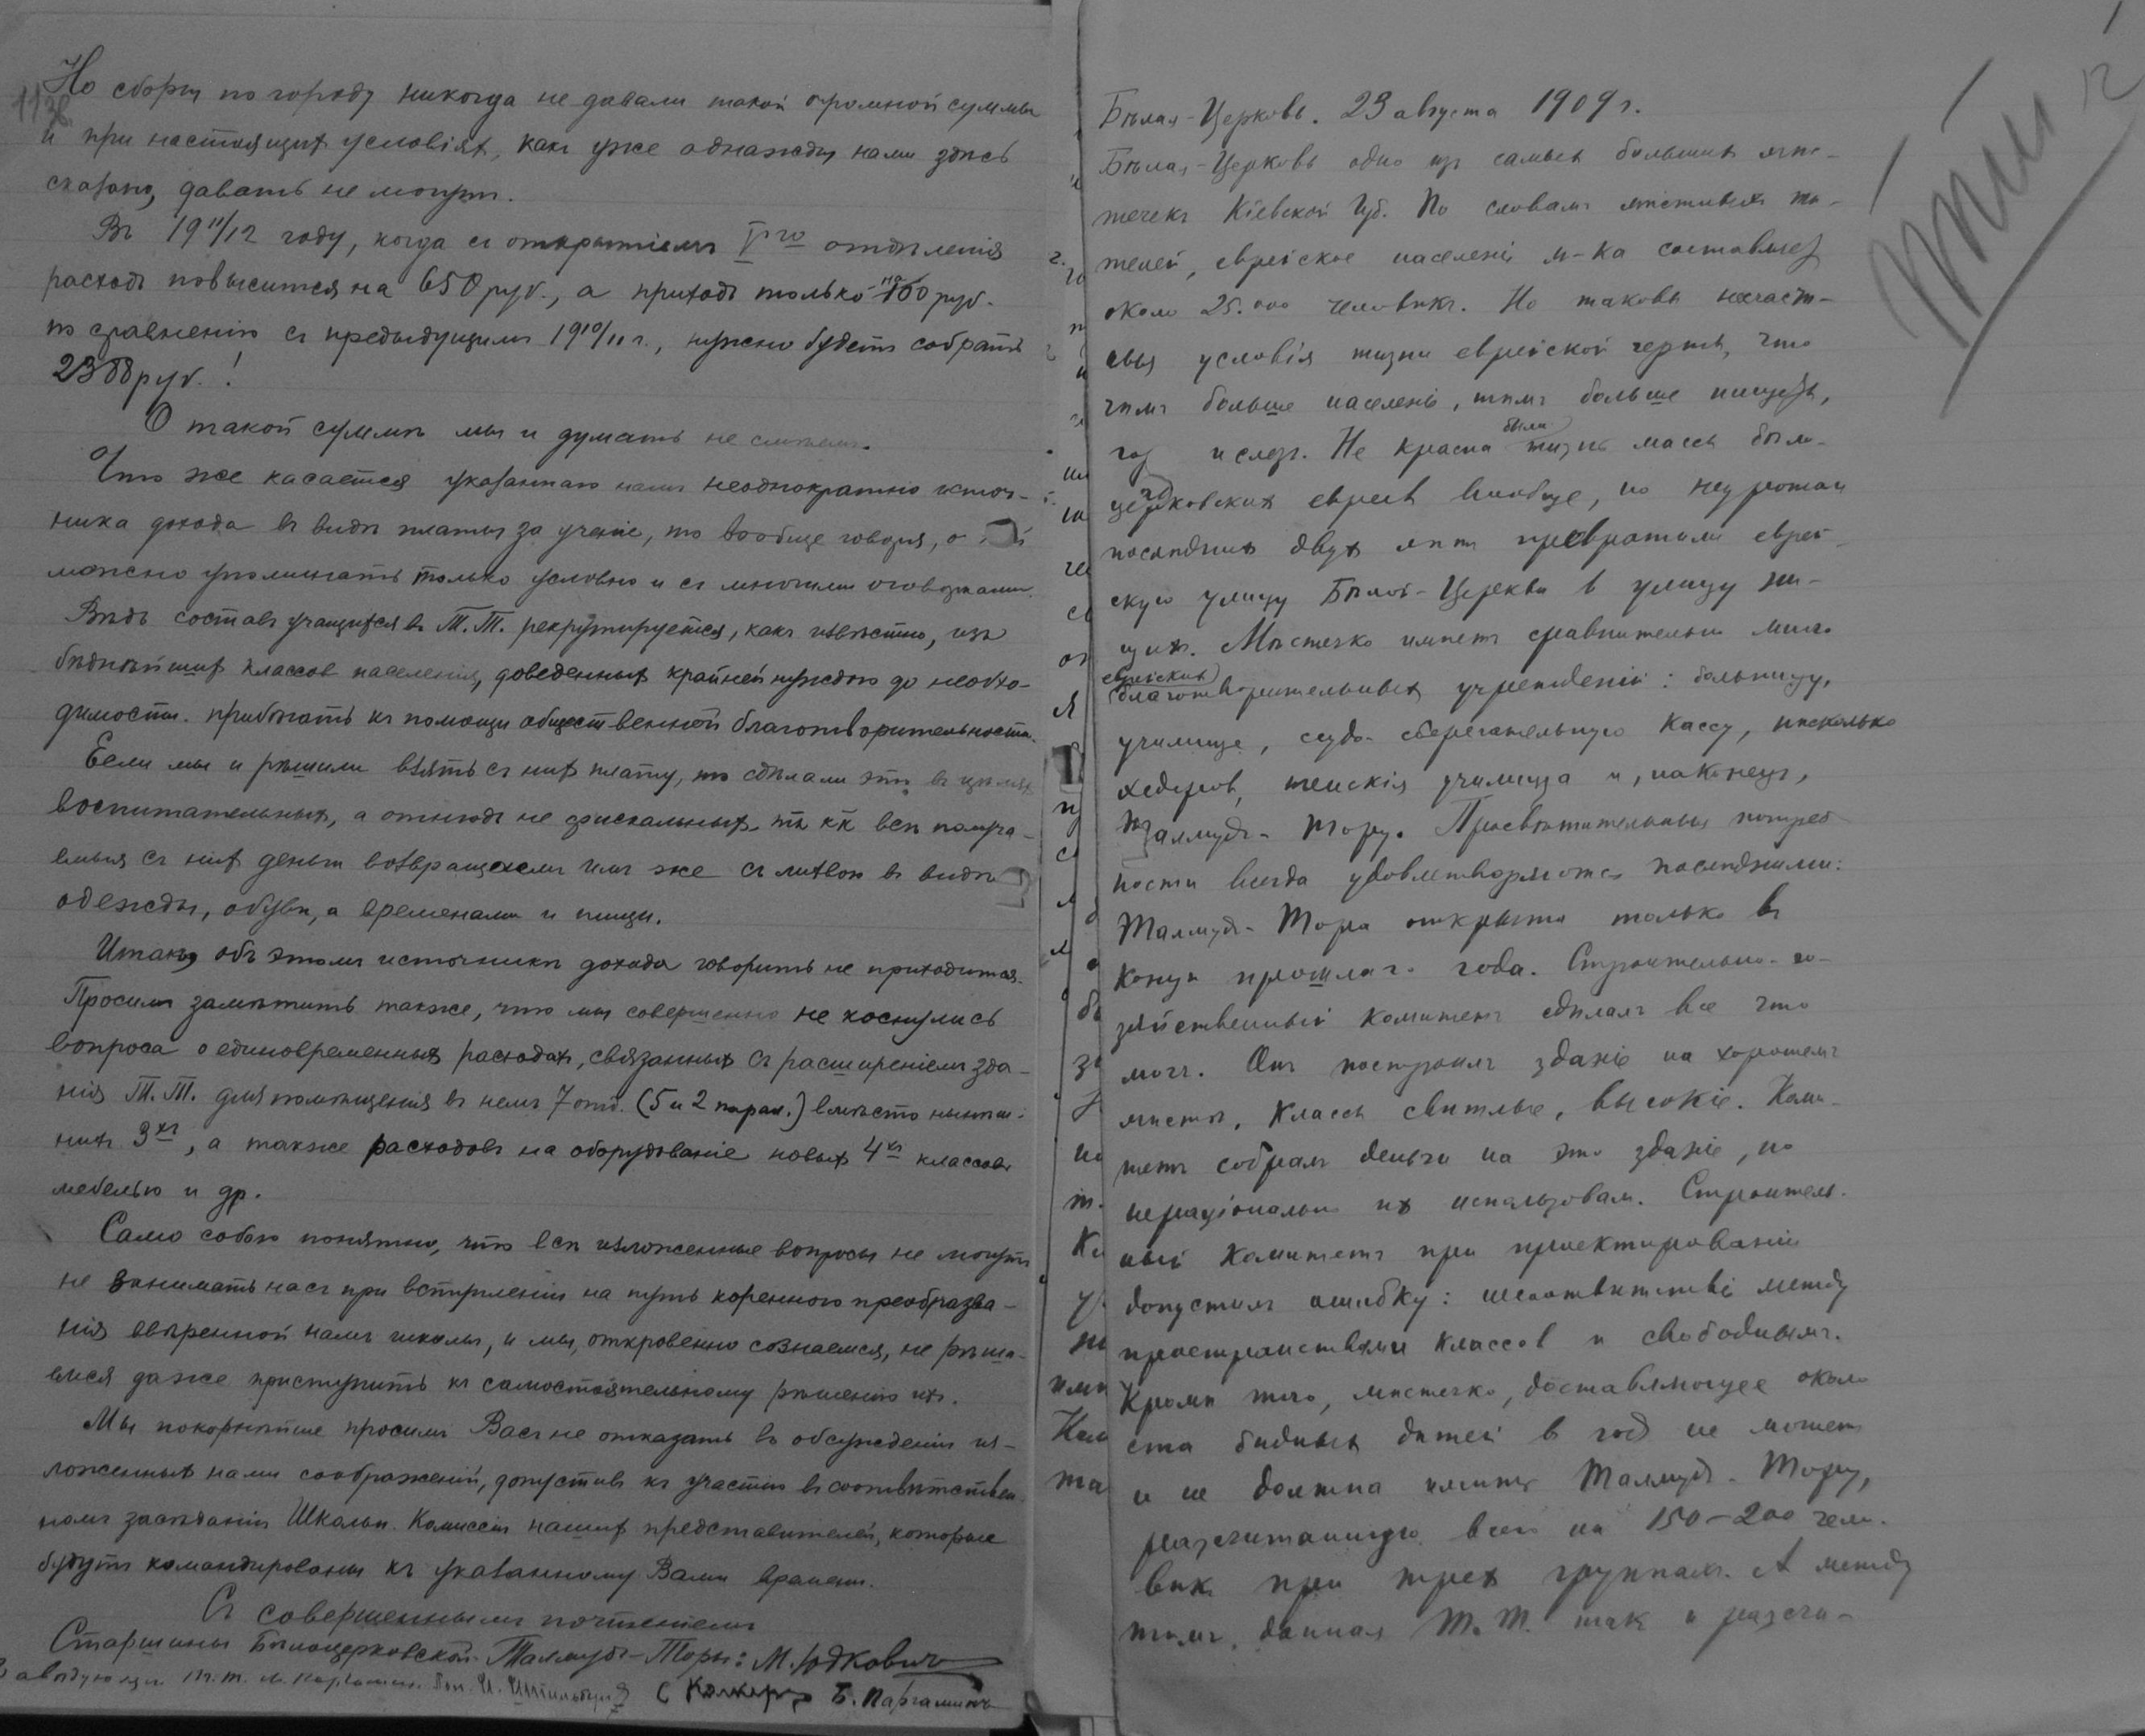 Но сборы по городу никогда не давали такой огромной суммы
и при настоящихъ условіяхъ, какъ уже однажды нами здѣсь
сказано, давать не могутъ.
Въ 1911/12 году, когда съ открытіемъ Vго отдѣленія
расходъ повысится на 650 руб., а приходъ только на 100 руб.
по сравненію съ предыдущимъ 1910/11 г., нужно будетъ собрать
руб.!
О такой суммѣ мы и думать не смѣемъ.
Что же касается указаннаго нами неоднократно источ-
ника дохода въ видѣ платы за ученіе, то вообще говоря, о
можно упоминать только условно и съ многими оговорками.
Вѣдь составъ учащихся въ Т.Т. рекрутируется, какъ извѣстно, изъ
бѣднѣйшихъ классов населенія, доведенныхъ крайней нуждою до необхо-
димости прибѣгать къ помощи общественной благотворительности.
Если мы и рѣшили взять съ нихъ плату, то сдѣлали это въ цѣляхъ
воспитательныхъ, а отнюдь не фискальныхъ, тк кк всѣ получа-
емыя съ нихъ деньги возвращаемъ имъ же съ лихвою въ видѣ
одежды, обуви, а временами и пищи.
Итакъ, объ этомъ источникѣ дохода говорить не приходится.
Просимъ замѣтить также, что мы совершенно не коснулись
вопроса о единовременныхъ расходахъ, связанныхъ съ расширеніемъ зда-
нія Т.Т. для помѣщенія въ немъ 7 отд. (5 и 2 парал.) вмѣсто нынѣш-
нихъ 3хъ, а также расходовъ на оборудованіе новыхъ 4хъ классовъ
мебелью и др.
Само собою понятно, что всѣ изложенные вопросы не могутъ
не занимать насъ при вступленіи на путь коренного преобразова-
нія ввѣренной намъ школы, и мы, откровенно сознаемся, не рѣша-
емся даже приступить къ самостоятельному рѣшенію ихъ.
Мы покорнѣйше просимъ Васъ не отказать въ обсужденіи из-
ложенныхъ нами соображеній, допустивъ къ участію въ соотвѣтствен-
номъ засѣданіи Школьн. Комиссіи нашихъ представителей, которые
будутъ командированы къ указанному Вами времени.
Съ совершеннымъ почтеніемъ
Старшины Бѣлоцерковской Талмудъ-Торы: М. Юдкович
Завѣдующ. Т.Т. Б. Паргаминъ
Бѣлая-Церковь. 23 августа 1909 г.
Бѣлая-Церковь одно из самых больших мѣс-
течекъ Кіевской Губ. По словамъ мѣстныхъ жи-
телей, еврейское населеніе м-ка составляет
около 25.000 человѣкъ. Но таковы несчаст-
ныя условія жизни еврейской черты, что
чѣмъ больше населеніе, тѣмъ больше нищеты,
и слез. Не красна была жизнь массы бѣло-
церковских евреев вообще, но неурожаи
послѣдних двух лѣтъ превратили еврей-
скую улицу Бѣлой-Церкви в улицу ни-
щих. Мѣстечко имѣетъ сравнительно много
еврейских благотворительных учрежденій: больницу,
училище, ссудо-сберегательную кассу, нѣсколько
хедеров, женскія училища и, наконец,
Талмудъ-Тору. Просвѣтительныя потреб-
ности всегда удовлетворяются послѣдними:
Талмудъ-Тора открыта только въ
концѣ прошлаго года. Строительно-хо-
зяйственный комитетъ сдѣлалъ все что
могъ. Онъ построилъ зданіе на хорошемъ
мѣстѣ, классы свѣтлые, высокіе. Коми-
тетъ собралъ деньги на это зданіе, но
нераціонально их использовалъ. Строитель-
ный комитетъ при проектированіи
допустилъ ошибку: несоотвѣтствіе между
пространствами классов и свободнымъ.
Кромѣ того, мѣстечко, доставляющее около
ста бѣдных дѣтей в год не может
и не должна имѣть Талмудъ-Тору,
разсчитанную всего на 150-200 чело-
вѣк при трех группахъ. А между
тѣмъ, данная Т.Т. так и разсчи-